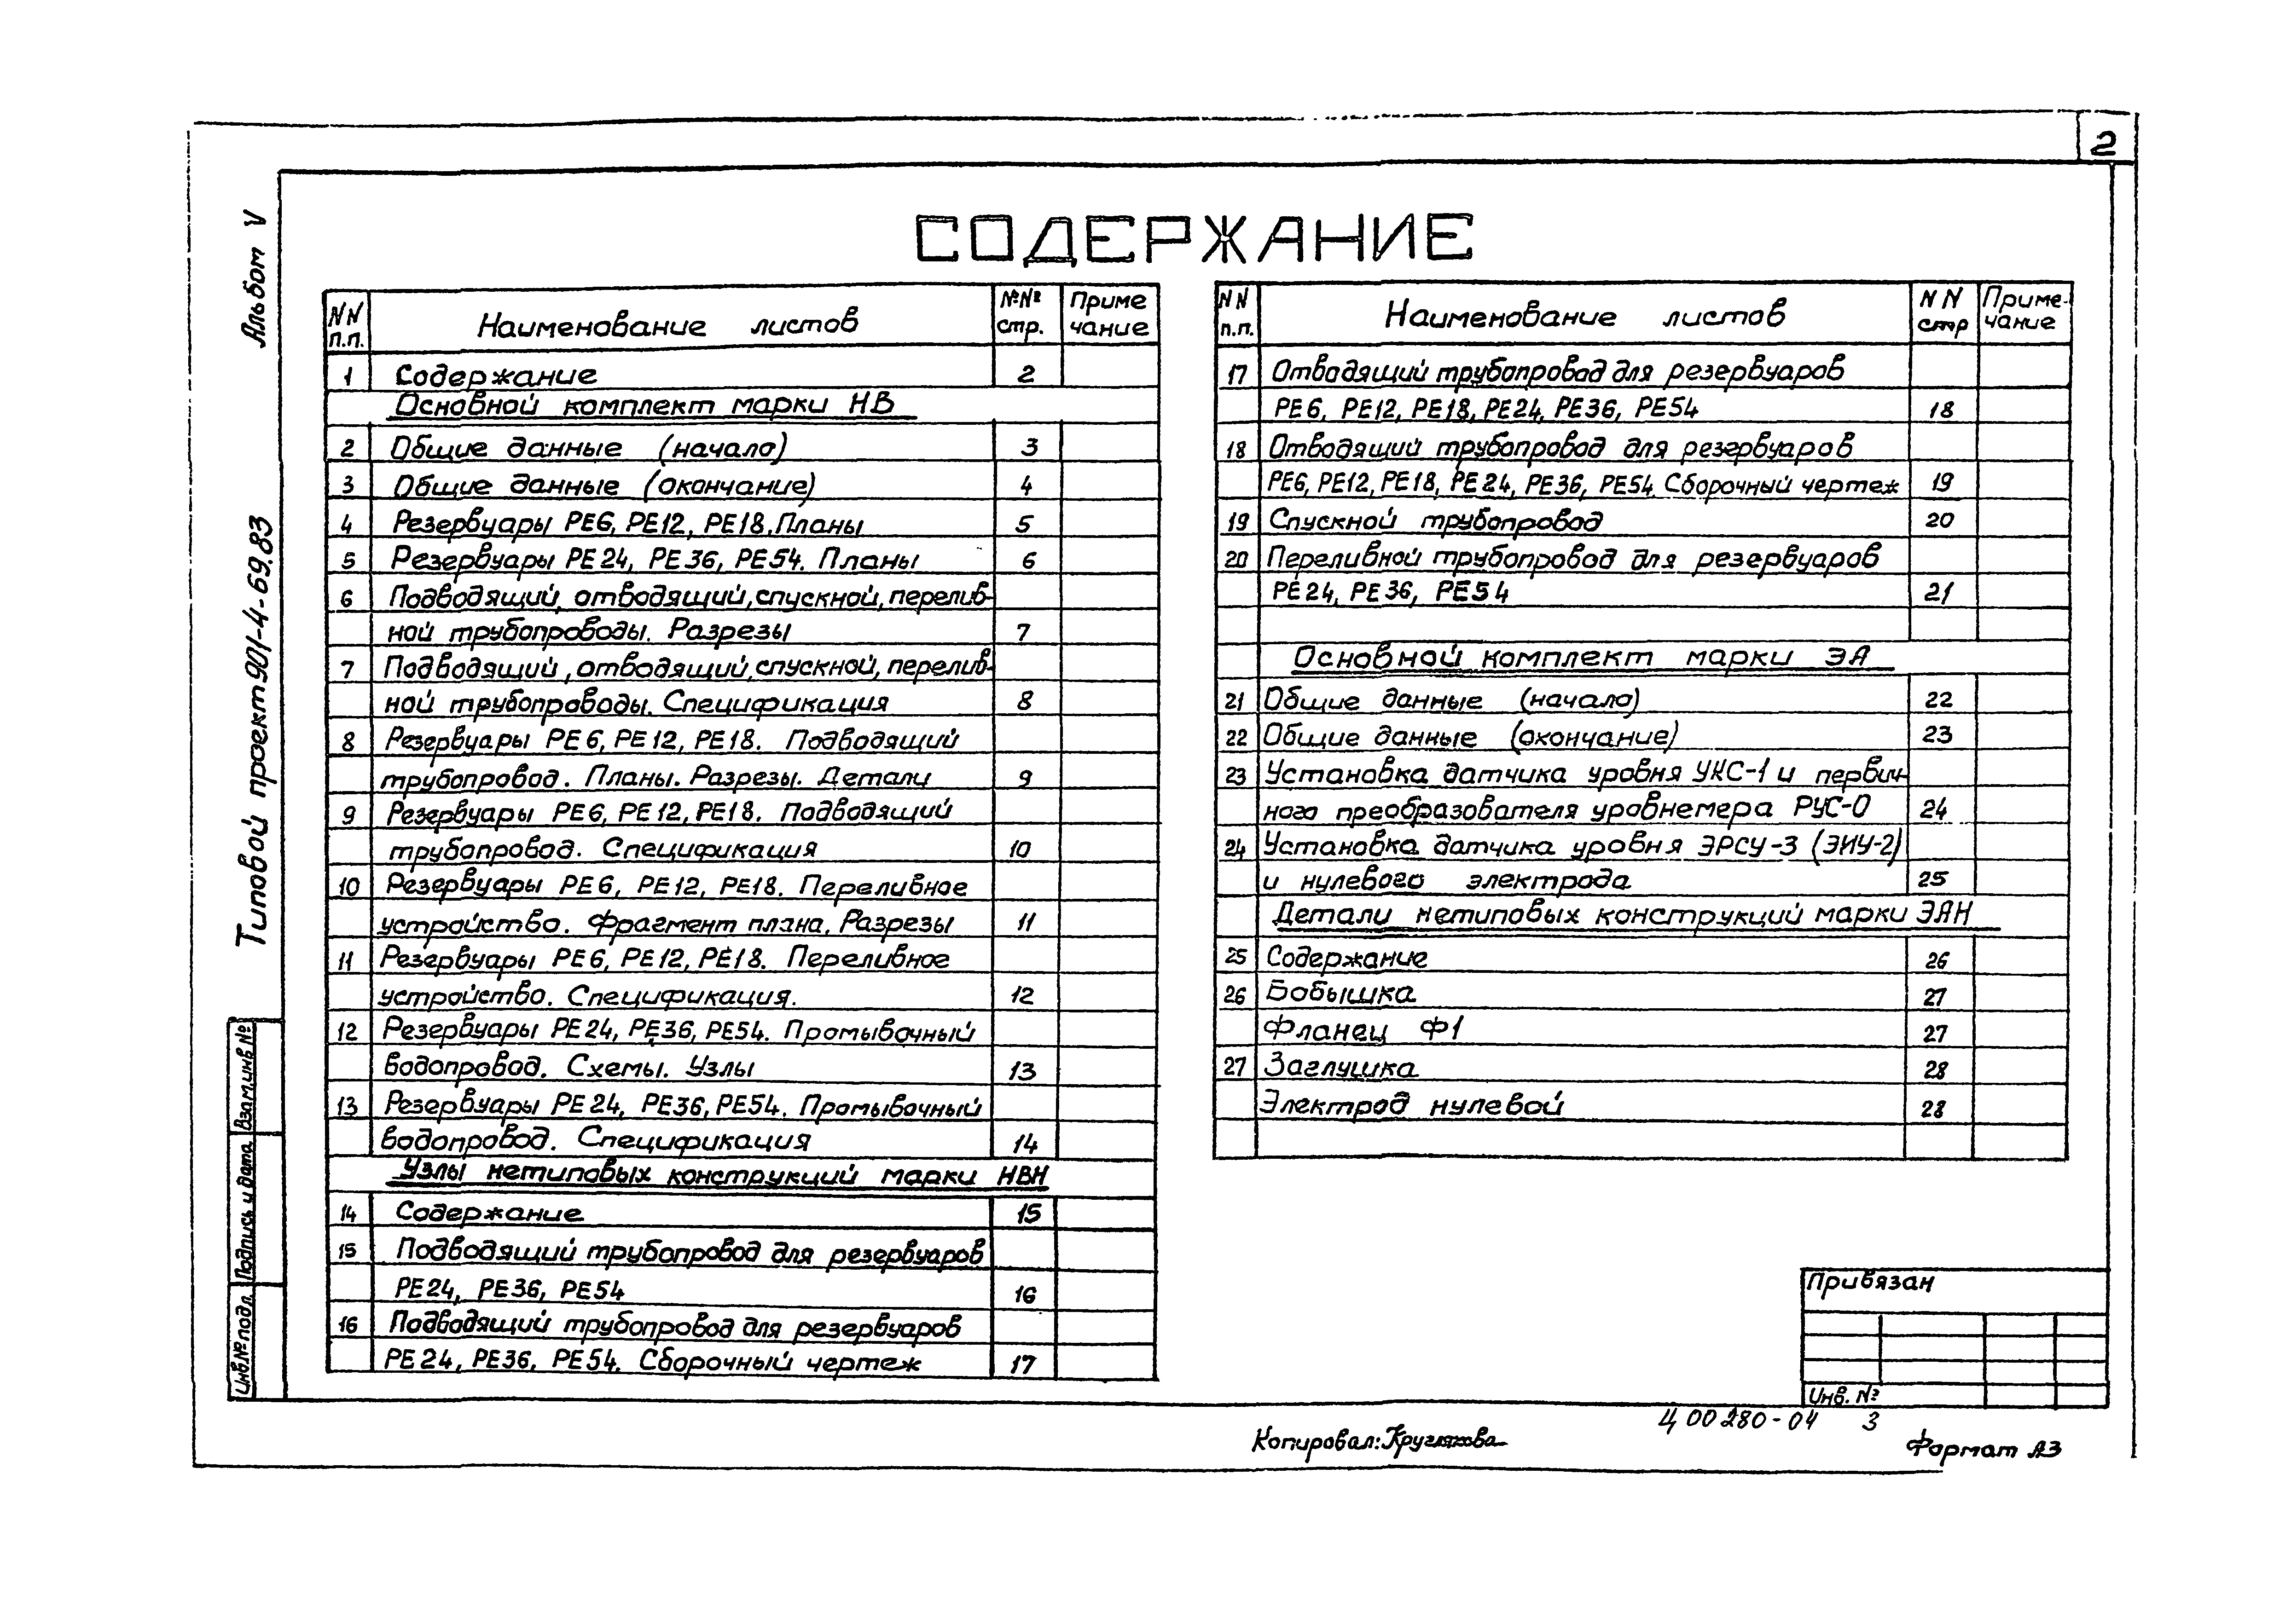 2
СОДЕРЖАНИЕ
Альбом V
Типовой проект 901-4-69.83
NN п.п. Наименование листов №№ стр. Приме чание
1 Содержание 2
Основной комплект марки НВ
2 Общие данные (начало) 3
3 Общие данные (окончание) 4
4 Резервуары РЕ6, РЕ12, РЕ18. Планы 5
5 Резервуары РЕ24, РЕ36, РЕ54. Планы 6
6 Подводящий, отводящий, спускной, перелив-
ной трубопроводы. Разрезы 7
7 Подводящий, отводящий, спускной, перелив-
ной трубопроводы. Спецификация 8
8 Резервуары РЕ6, РЕ12, РЕ18. Подводящий
трубопровод. Планы. Разрезы. Детали 9
9 Резервуары РЕ6, РЕ12, РЕ18. Подводящий
трубопровод. Спецификация 10
10 Резервуары РЕ6, РЕ12, РЕ18. Переливное
устройство. Фрагмент плана. Разрезы 11
11 Резервуары РЕ6, РЕ12, РЕ18. Переливное
устройство. Спецификация. 12
12 Резервуары РЕ24, РЕ36, РЕ54. Промывочный
водопровод. Схемы. Узлы 13
13 Резервуары РЕ24, РЕ36, РЕ54. Промывочный
водопровод. Спецификация 14
Узлы нетиповых конструкций марки НВН
14 Содержание 15
15 Подводящий трубопровод для резервуаров
РЕ24, РЕ36, РЕ54 16
16 Подводящий трубопровод для резервуаров
РЕ24, РЕ36, РЕ54. Сборочный чертеж 17
NN п.п. Наименование листов NN стр Приме-чание
17 Отводящий трубопровод для резервуаров
РЕ6, РЕ12, РЕ18, РЕ24, РЕ36, РЕ54 18
18 Отводящий трубопровод для резервуаров
РЕ6, РЕ12, РЕ18, РЕ24, РЕ36, РЕ54 Сборочный чертеж 19
19 Спускной трубопровод 20
20 Переливной трубопровод для резервуаров
РЕ24, РЕ36, РЕ54 21
Основной комплект марки ЭА
21 Общие данные (начало) 22
22 Общие данные (окончание) 23
23 Установка датчика уровня УКС-1 и первич-
ного преобразователя уровнемера РУС-О 24
24 Установка датчика уровня ЭРСУ-3 (ЭИУ-2)
и нулевого электрода 25
Детали нетиповых конструкций марки ЭАН
25 Содержание 26
26 Бобышка 27
Фланец Ф1 27
27 Заглушка 28
Электрод нулевой 28
Взам.инв №
Подпись и дата
Инв.№ подл.
Привязан
Инв. №
Ц 00280-04 3
Копировал: Круглякова
Формат А3